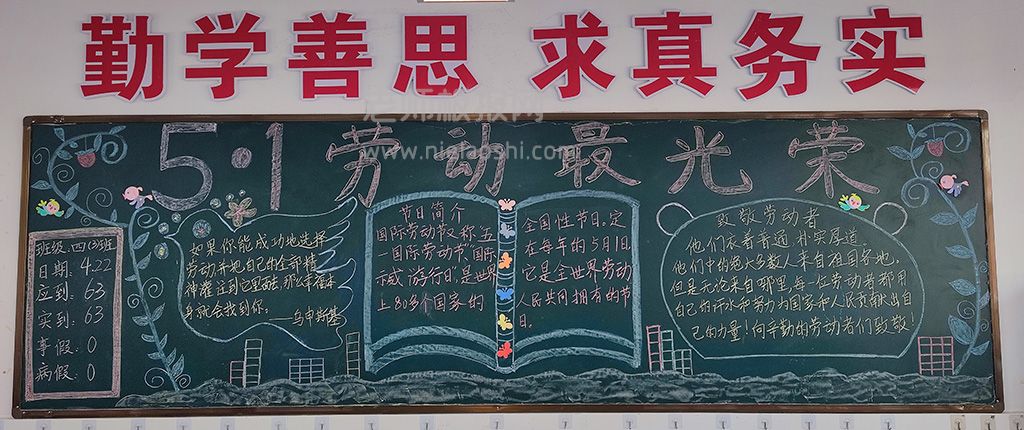 勤学善思 求真务实
老师板报网
www.nisiaoshi.com
5·1劳动最光荣
班级:四(3)班
日期:4.22
应到:63
实到:63
事假:0
病假:0
如果你能成功地选择
劳动,并把自己的全部精
神灌注到它里面去,那么幸福本
身就会找到你。
——乌申斯基
节日简介
国际劳动节又称“五
一国际劳动节”“国际
示威游行日”,是世界
上80多个国家的
全国性节日,定
在每年的5月1日,
它是全世界劳动
人民共同拥有的节
日。
致敬劳动者
他们衣着普通、朴实厚道。
他们中的绝大多数人来自祖国各地,
但是无论来自哪里,每一位劳动者都用
自己的汗水和努力为国家和人民贡献出自
己的力量!向辛勤的劳动者们致敬!